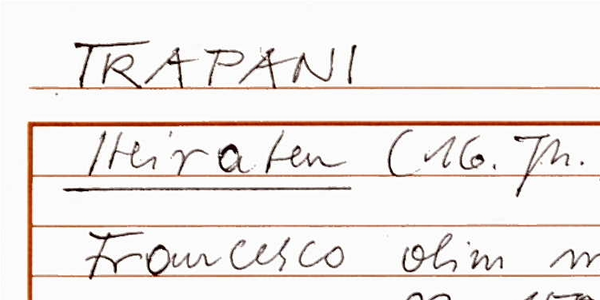 TRAPANI
Heiraten (16. Jh.
Francesco olim